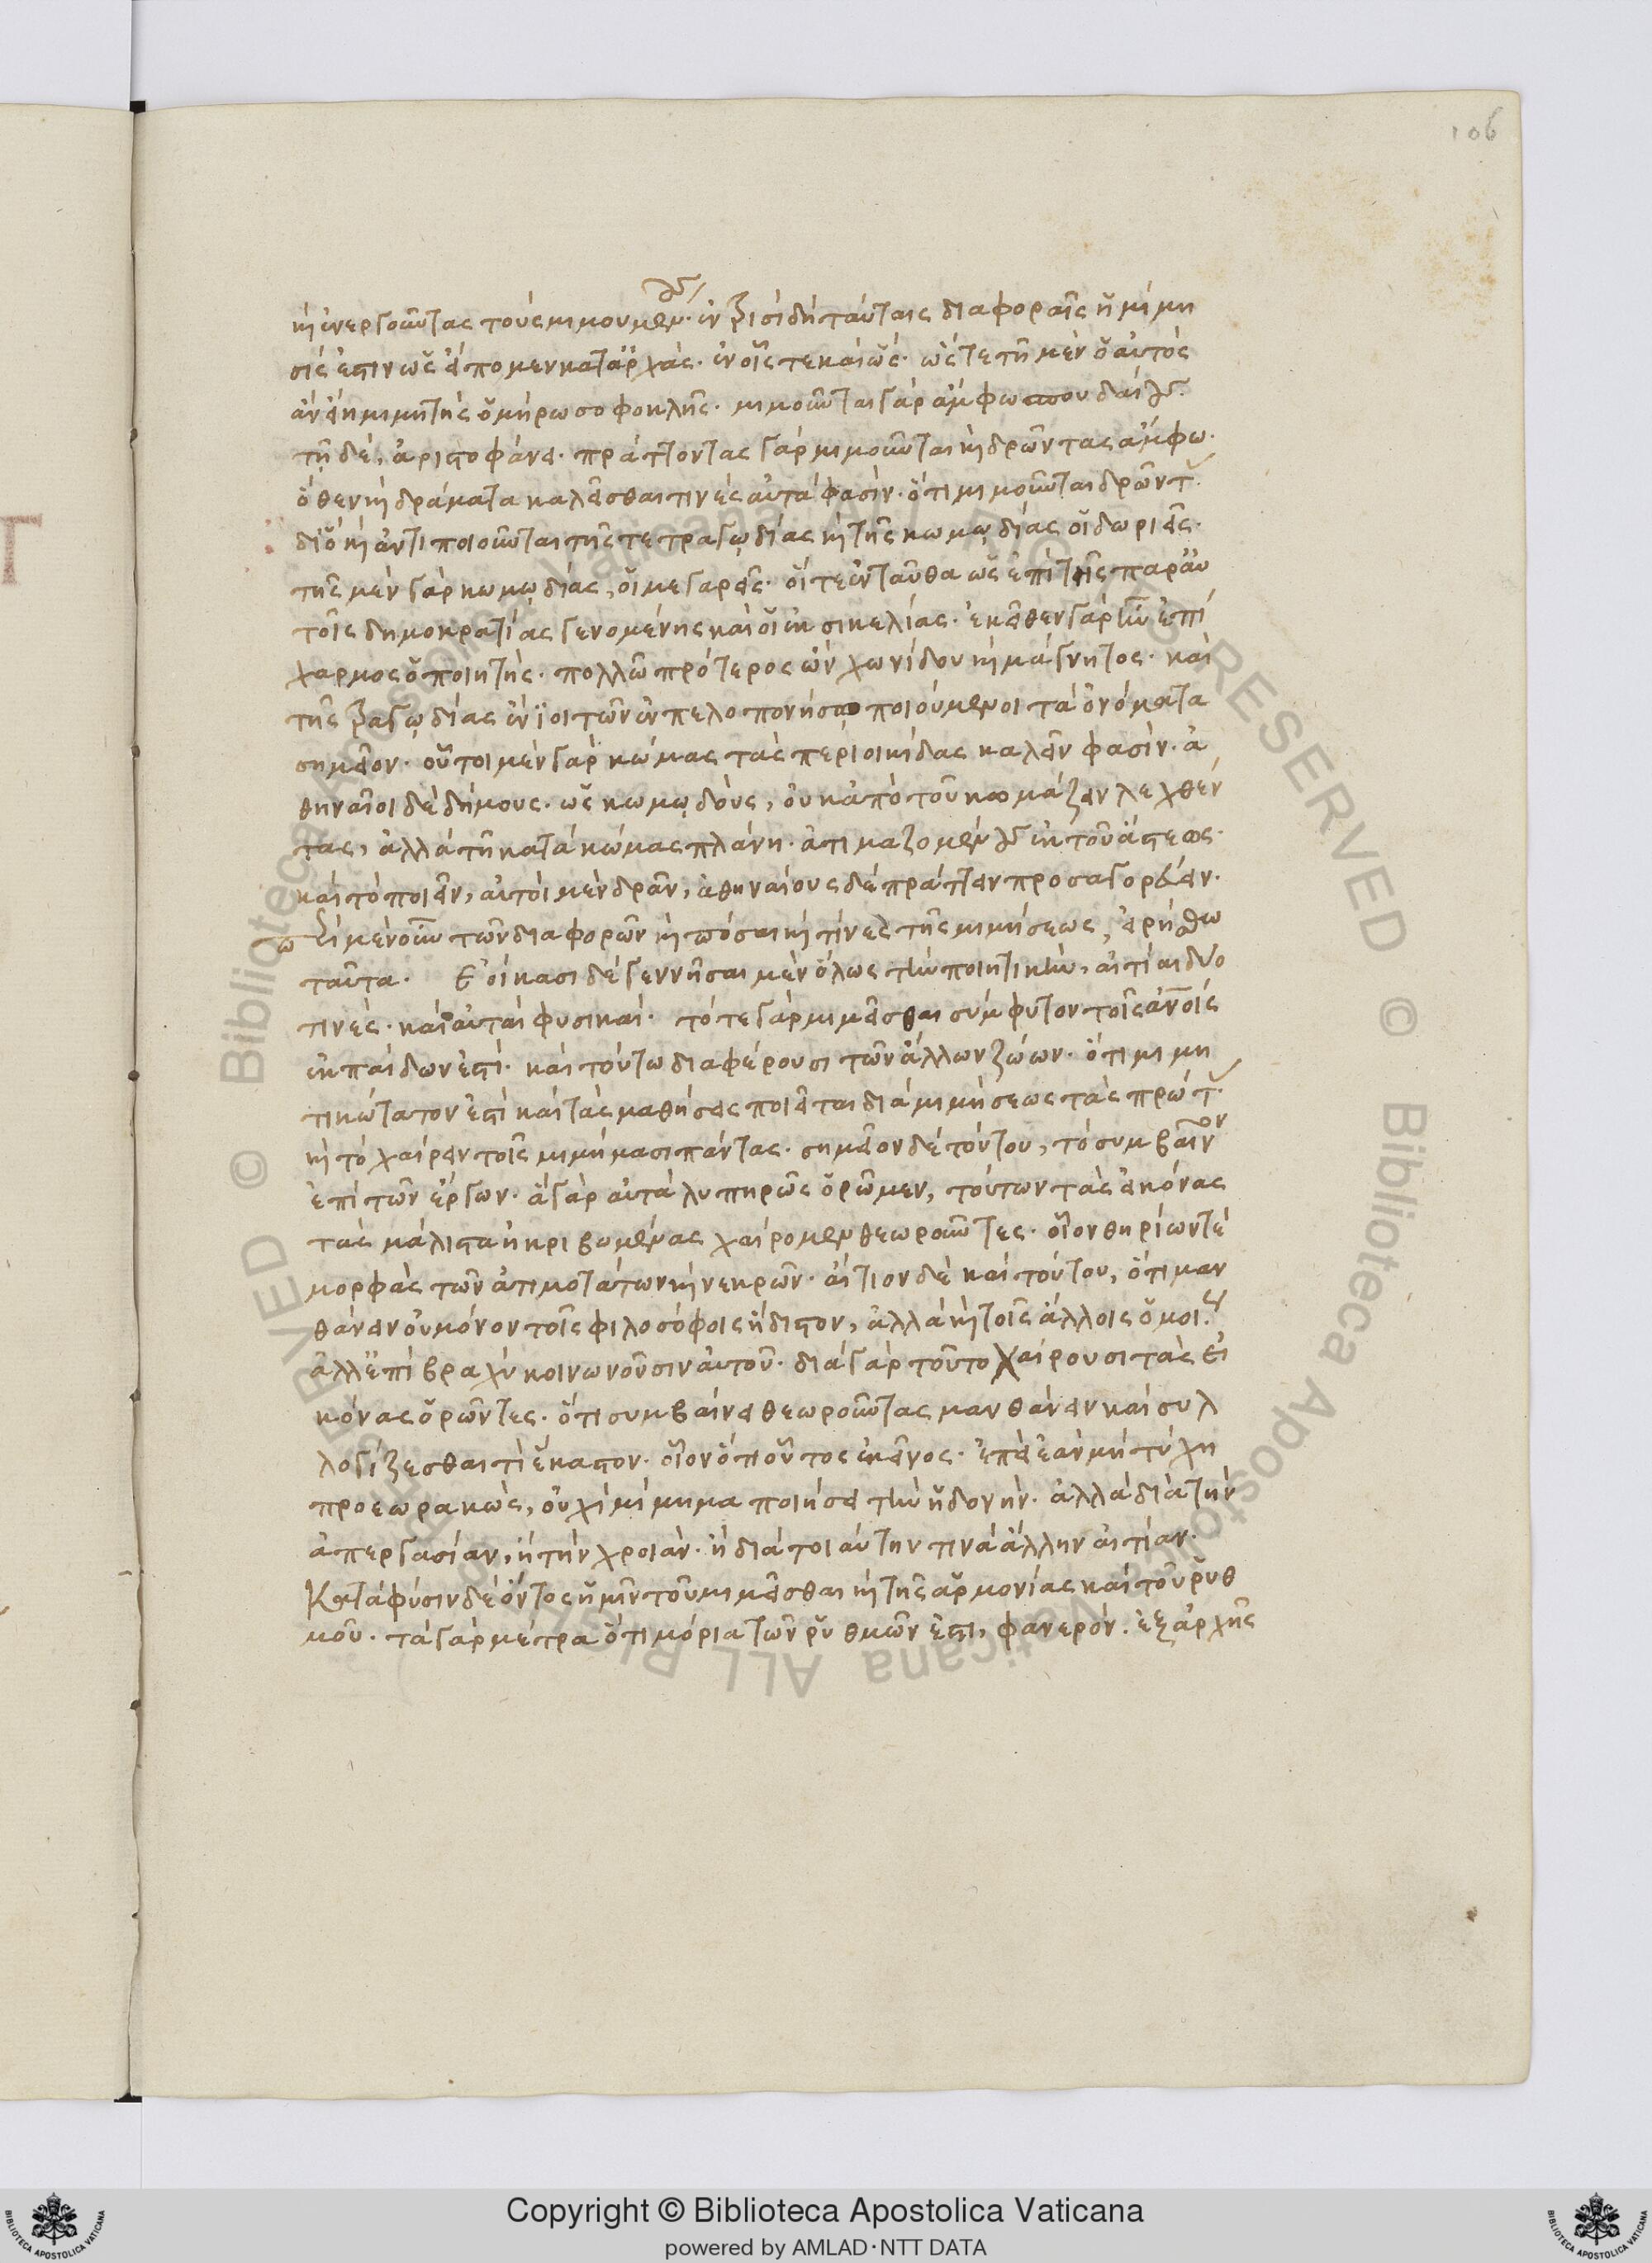 106
καὶ ἐνεργοῦντας τοὺς μιμουμένους· ἐν τρισὶ δὴ ταύταις διαφοραῖς ἡ μίμη
σίς ἐστιν ὡς εἴπομεν κατ' ἀρχὰς· ἐν οἷς τε καὶ ὥς· ὥστε τῇ μὲν ὁ αὐτὸς
ἂν εἴη μιμητὴς ὁμήρω σοφοκλῆς· μιμοῦνται γὰρ ἄμφω σπουδαίους·
τῇ δὲ, ἀριστοφάνει· πράττοντας γὰρ μιμοῦνται καὶ δρῶντας ἄμφω·
ὅθεν καὶ δράματα καλεῖσθαι τινὲς αὐτά φασὶν· ὅτι μιμοῦνται δρῶντας·
διὸ καὶ ἀντιποιοῦνται τῆς τε τραγῳδίας καὶ τῆς κωμῳδίας οἱ δωριεῖς·
τῆς μὲν γὰρ κωμῳδίας, οἱ μεγαρεῖς· οἵ τε ἐνταῦθα ὡς ἐπὶ τῆς παρ' αὐ
τοῖς δημοκρατίας γενομένης καὶ οἱ ἐκ σικελίας· ἐκεῖθεν γὰρ ἦν ἐπί
χαρμος ὁ ποιητὴς· πολλῶ πρότερος ὢν χωνίδου καὶ μάγνητος· καὶ
τῆς τραγῳδίας ἔνιοι τῶν ἐν πελοπονήσω ποιούμενοι τὰ ὀνόματα
σημεῖον· οὗτοι μὲν γὰρ κώμας τὰς περιοικίδας καλεῖν φασὶν· ἀ
θηναῖοι δὲ δήμους· ὡς κωμῳδοὺς, οὐκ ἀπὸ τοῦ κωμάζειν λεχθέν
τας, ἀλλὰ τῇ κατὰ κώμας πλάνη· ἀτιμαζομένους ἐκ τοῦ ἄστεως·
καὶ τὸ ποιεῖν, αὐτοὶ μὲν δρᾶν, ἀθηναίους δὲ πράττειν προσαγορεύειν·
περὶ μὲν οὖν τῶν διαφορῶν καὶ πόσαι καὶ τίνες τῆς μιμήσεως, εἰρήσθω
ταῦτα. Ἐοίκασι δὲ γεννῆσαι μὲν ὅλως τὴν ποιητικὴν, αἰτίαι δύο
τινὲς· καὶ αὗται φυσικαί· τό τε γὰρ μιμεῖσθαι σύμφυτον τοῖς ἀνοις
ἐκ παίδων ἐστὶ· καὶ τούτω διαφέρουσι τῶν ἄλλων ζώων· ὅτι μιμη
τικώτατον ἐστὶ καὶ τὰς μαθήσεις ποιεῖται διὰ μιμήσεως τὰς πρώτας·
καὶ τὸ χαίρειν τοῖς μιμήμασι πάντας· σημεῖον δὲ τούτου, τὸ συμβαῖνον
ἐπὶ τῶν ἔργων· ἃ γὰρ αὐτὰ λυπηρῶς ὁρῶμεν, τούτων τὰς εἰκόνας
τὰς μάλιστα ἠκριβωμένας χαίρομεν θεωροῦντες· οἷον θηρίων τὲ
μορφὰς τῶν ἀτιμοτάτων καὶ νεκρῶν· αἴτιον δὲ καὶ τούτου, ὅτι μαν
θάνειν οὐ μόνον τοῖς φιλοσόφοις ἥδιστον, ἀλλὰ καὶ τοῖς ἄλλοις ὁμοίως·
ἀλλ' ἐπὶ βραχὺ κοινωνοῦσιν αὐτοῦ· διὰ γὰρ τοῦτο χαίρουσι τὰς εἰ
κόνας ὁρῶντες· ὅτι συμβαίνει θεωροῦντας μανθάνειν καὶ συλ
λογίζεσθαι τὶ ἕκαστον· οἷον ὅτι οὗτος ἐκεῖνος· ἐπεὶ ἐὰν μὴ τύχη
προεωρακὼς, οὐχὶ μίμημα ποιήσει τὴν ἡδονὴν· ἀλλὰ διὰ τὴν
ἀπεργασίαν, ἢ τὴν χροιὰν· ἢ διὰ τοιαύτην τινὰ ἄλλην αἰτίαν·
Κατὰ φύσιν δὲ ὄντος ἡμῖν τοῦ μιμεῖσθαι καὶ τῆς ἁρμονίας καὶ τοῦ ῥυθ
μοῦ· τὰ γὰρ μέτρα ὅτι μόρια τῶν ῥυθμῶν ἐστι, φανερόν· ἐξ ἀρχῆς
Copyright © Biblioteca Apostolica Vaticana
powered by AMLAD·NTT DATA